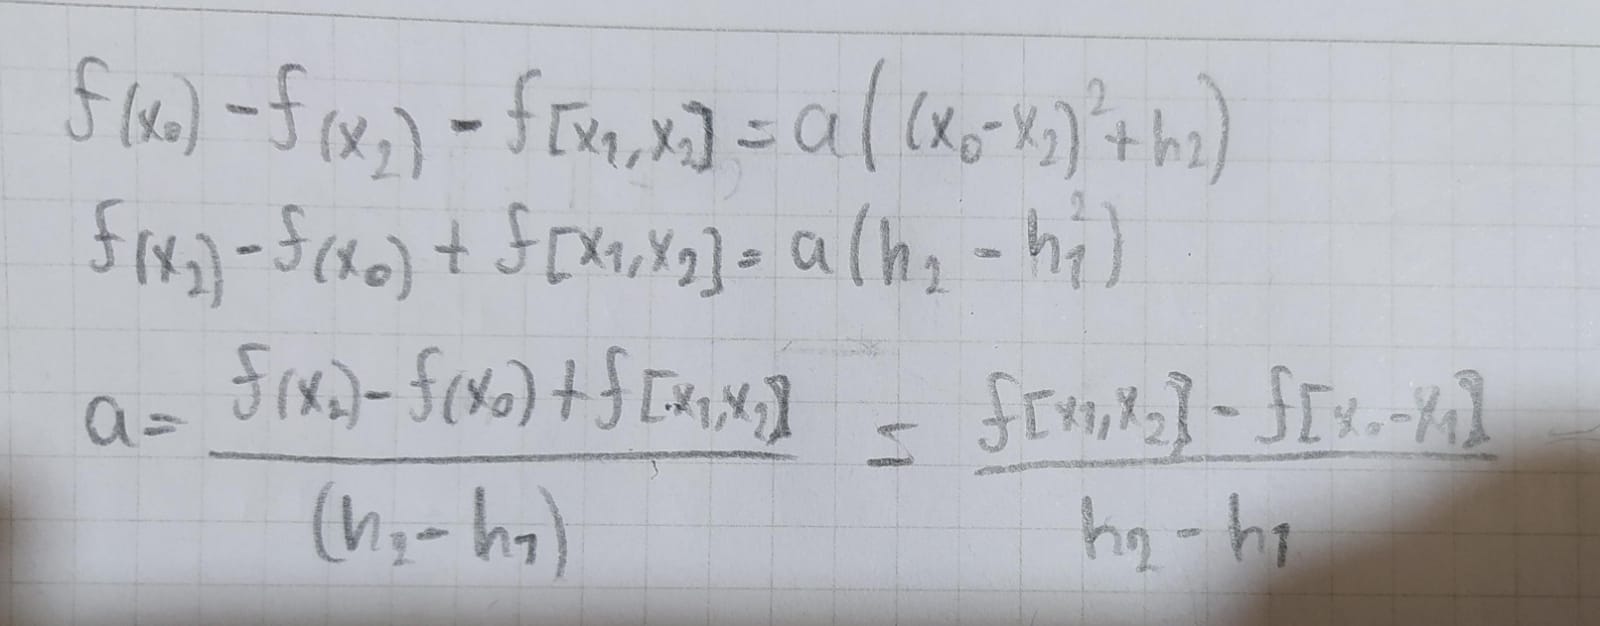 f(x₀) - f(x₂) - f[x₁,x₂] = a((x₀-x₂)² + h₂)
f(x₂) - f(x₀) + f[x₁,x₂] = a(h₂ - h₁²)
a = (f(x₂) - f(x₀) + f[x₁,x₂]) / (h₂ - h₁) = (f[x₁,x₂] - f[x₀-x₁]) / (h₂ - h₁)